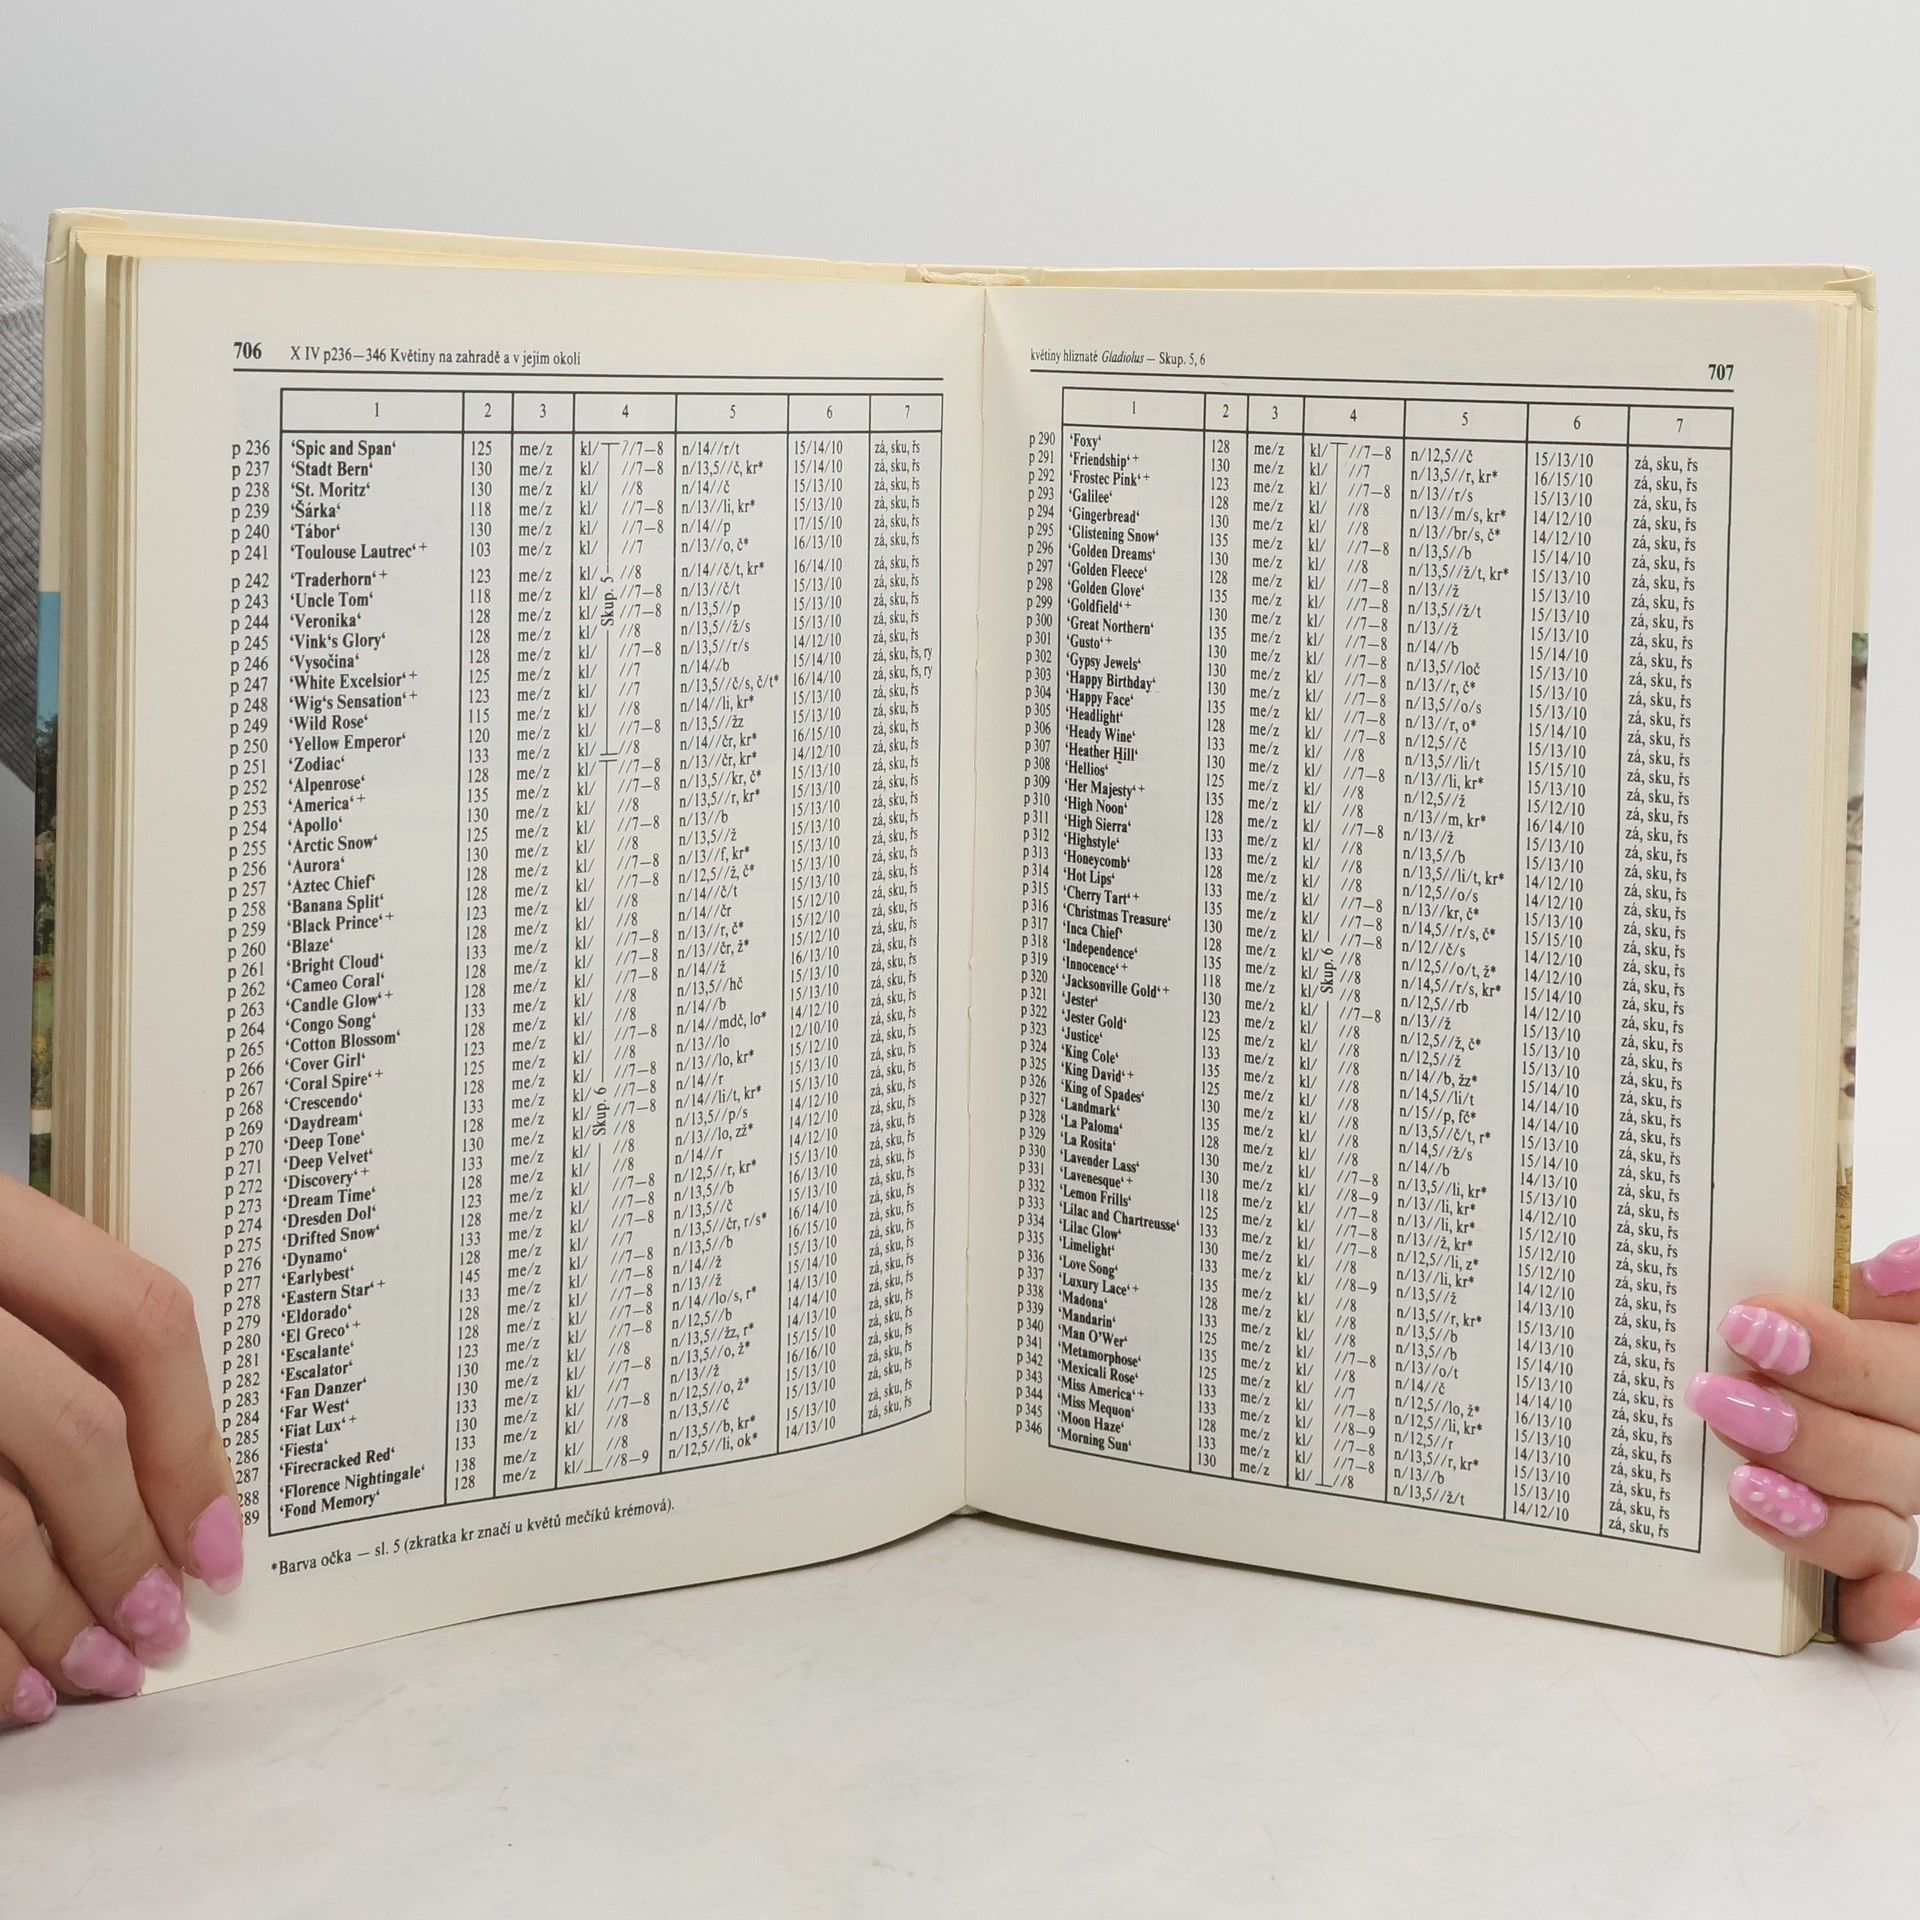 706 X IV p236—346 Květiny na zahradě a v jejím okolí
1 2 3 4 5 6 7
p 236 ‘Spic and Span‘ 125 me/z kl/ //7—8 n/14//r/t 15/14/10 zá, sku, řs
p 237 ‘Stadt Bern‘ 130 me/z kl/ //7—8 n/13,5//č, kr* 15/14/10 zá, sku, řs
p 238 ‘St. Moritz‘ 130 me/z kl/ //8 n/14//č 15/13/10 zá, sku, řs
p 239 ‘Šárka‘ 118 me/z kl/ //7—8 n/13//li, kr* 15/13/10 zá, sku, řs
p 240 ‘Tábor‘ 130 me/z kl/ //7—8 n/14//p 17/15/10 zá, sku, řs
p 241 ‘Toulouse Lautrec‘+ 103 me/z kl/ //7 n/13//o, č* 16/13/10 zá, sku, řs
p 242 ‘Traderhorn‘+ 123 me/z kl/ Skup. 5 //8 n/14//č/t, kr* 16/14/10 zá, sku, řs
p 243 ‘Uncle Tom‘ 118 me/z kl/ //7—8 n/13//č/t 15/13/10 zá, sku, řs
p 244 ‘Veronika‘ 128 me/z kl/ //7—8 n/13,5//p 15/13/10 zá, sku, řs
p 245 ‘Vink‘s Glory‘ 128 me/z kl/ //8 n/13,5//ž/s 15/13/10 zá, sku, řs
p 246 ‘Vysočina‘ 128 me/z kl/ //7—8 n/13,5//r/s 14/12/10 zá, sku, řs
p 247 ‘White Excelsior‘+ 125 me/z kl/ //7 n/14//b 15/14/10 zá, sku, řs, ry
p 248 ‘Wig‘s Sensation‘+ 123 me/z kl/ //7 n/13,5//č/s, č/t* 16/14/10 zá, sku, řs, ry
p 249 ‘Wild Rose‘ 115 me/z kl/ //8 n/14//li, kr* 15/13/10 zá, sku, řs
p 250 ‘Yellow Emperor‘ 120 me/z kl/ //7—8 n/13,5//žz 15/13/10 zá, sku, řs
p 251 ‘Zodiac‘ 133 me/z kl/ //8 n/14//čr, kr* 16/15/10 zá, sku, řs
p 252 ‘Alpenrose‘ 128 me/z kl/ //7—8 n/13//čr, kr* 14/12/10 zá, sku, řs
p 253 ‘America‘+ 135 me/z kl/ //7—8 n/13,5//kr, č* 15/13/10 zá, sku, řs
p 254 ‘Apollo‘ 130 me/z kl/ //8 n/13,5//r, kr* 15/13/10 zá, sku, řs
p 255 ‘Arctic Snow‘ 125 me/z kl/ //7—8 n/13//b 15/13/10 zá, sku, řs
p 256 ‘Aurora‘ 130 me/z kl/ //8 n/13,5//ž 15/13/10 zá, sku, řs
p 257 ‘Aztec Chief‘ 128 me/z kl/ //7—8 n/13//f, kr* 15/13/10 zá, sku, řs
p 258 ‘Banana Split‘ 128 me/z kl/ //7—8 n/12,5//ž, č* 15/13/10 zá, sku, řs
p 259 ‘Black Prince‘+ 123 me/z kl/ //8 n/14//č/t 15/13/10 zá, sku, řs
p 260 ‘Blaze‘ 128 me/z kl/ //8 n/14//čr 15/12/10 zá, sku, řs
p 261 ‘Bright Cloud‘ 133 me/z kl/ //7—8 n/13//r, č* 15/12/10 zá, sku, řs
p 262 ‘Cameo Coral‘ 128 me/z kl/ //7—8 n/13//čr, ž* 15/12/10 zá, sku, řs
p 263 ‘Candle Glow‘+ 128 me/z kl/ //7—8 n/14//ž 16/13/10 zá, sku, řs
p 264 ‘Congo Song‘ 133 me/z kl/ //8 n/13,5//hč 15/13/10 zá, sku, řs
p 265 ‘Cotton Blossom‘ 128 me/z kl/ //8 n/14//b 15/13/10 zá, sku, řs
p 266 ‘Cover Girl‘ 123 me/z kl/ //7—8 n/14//mdč, lo* 14/12/10 zá, sku, řs
p 267 ‘Coral Spire‘+ 125 me/z kl/ //8 n/13//lo 12/10/10 zá, sku, řs
p 268 ‘Crescendo‘ 128 me/z kl/ //7—8 n/13//lo, kr* 15/12/10 zá, sku, řs
p 269 ‘Daydream‘ 133 me/z kl/ //7—8 n/14//r 15/13/10 zá, sku, řs
p 270 ‘Deep Tone‘ 128 me/z kl/ Skup. 6 //7—8 n/14//li/t, kr* 15/13/10 zá, sku, řs
p 271 ‘Deep Velvet‘ 130 me/z kl/ //8 n/13,5//p/s 14/12/10 zá, sku, řs
p 272 ‘Discovery‘+ 133 me/z kl/ //8 n/13//lo, zž* 14/12/10 zá, sku, řs
p 273 ‘Dream Time‘ 128 me/z kl/ //8 n/14//r 14/12/10 zá, sku, řs
p 274 ‘Dresden Dol‘ 123 me/z kl/ //7—8 n/12,5//r, kr* 15/13/10 zá, sku, řs
p 275 ‘Drifted Snow‘ 128 me/z kl/ //7—8 n/13,5//b 16/13/10 zá, sku, řs
p 276 ‘Dynamo‘ 133 me/z kl/ //7—8 n/13,5//č 15/13/10 zá, sku, řs
p 277 ‘Earlybest‘ 128 me/z kl/ //7 n/13,5//čr, r/s* 16/14/10 zá, sku, řs
p 278 ‘Eastern Star‘+ 145 me/z kl/ //7—8 n/13,5//b 16/15/10 zá, sku, řs
p 279 ‘Eldorado‘ 133 me/z kl/ //7—8 n/14//ž 15/13/10 zá, sku, řs
p 280 ‘El Greco‘+ 128 me/z kl/ //7—8 n/13//ž 15/14/10 zá, sku, řs
p 281 ‘Escalante‘ 128 me/z kl/ //7—8 n/14//lo/s, r* 14/13/10 zá, sku, řs
p 282 ‘Escalator‘ 123 me/z kl/ //7—8 n/12,5//b 14/14/10 zá, sku, řs
p 283 ‘Fan Danzer‘ 130 me/z kl/ //8 n/13,5//žz, r* 14/13/10 zá, sku, řs
p 284 ‘Far West‘ 130 me/z kl/ //7—8 n/13,5//o, ž* 15/15/10 zá, sku, řs
p 285 ‘Fiat Lux‘+ 133 me/z kl/ //7 n/13//ž 16/16/10 zá, sku, řs
286 ‘Fiesta‘ 130 me/z kl/ //7—8 n/12,5//o, ž* 15/13/10 zá, sku, řs
287 ‘Firecracked Red‘ 133 me/z kl/ //8 n/13,5//č 15/13/10 zá, sku, řs
288 ‘Florence Nightingale‘ 138 me/z kl/ //8 n/13,5//b, kr* 15/13/10 zá, sku, řs
89 ‘Fond Memory‘ 128 me/z kl/ //8—9 n/12,5//li, ok* 14/13/10 zá, sku, řs
*Barva očka — sl. 5 (zkratka kr značí u květů mečíků krémová).
květiny hlíznaté Gladiolus — Skup. 5, 6 707
1 2 3 4 5 6 7
p 290 ‘Foxy‘ 128 me/z kl/ //7—8 n/12,5//č 15/13/10 zá, sku, řs
p 291 ‘Friendship‘+ 130 me/z kl/ //7 n/13,5//r, kr* 16/15/10 zá, sku, řs
p 292 ‘Frostec Pink‘+ 123 me/z kl/ //7—8 n/13//r/s 15/13/10 zá, sku, řs
p 293 ‘Galilee‘ 128 me/z kl/ //8 n/13//m/s, kr* 14/12/10 zá, sku, řs
p 294 ‘Gingerbread‘ 130 me/z kl/ //8 n/13//br/s, č* 14/12/10 zá, sku, řs
p 295 ‘Glistening Snow‘ 135 me/z kl/ //7—8 n/13,5//b 15/14/10 zá, sku, řs
p 296 ‘Golden Dreams‘ 130 me/z kl/ //8 n/13,5//ž/t, kr* 15/13/10 zá, sku, řs
p 297 ‘Golden Fleece‘ 128 me/z kl/ //7—8 n/13//ž 15/13/10 zá, sku, řs
p 298 ‘Golden Glove‘ 135 me/z kl/ //7—8 n/13,5//ž/t 15/13/10 zá, sku, řs
p 299 ‘Goldfield‘+ 130 me/z kl/ //7—8 n/13//ž 15/13/10 zá, sku, řs
p 300 ‘Great Northern‘ 135 me/z kl/ //7—8 n/14//b 15/14/10 zá, sku, řs
p 301 ‘Gusto‘+ 130 me/z kl/ //7—8 n/13,5//loč 15/13/10 zá, sku, řs
p 302 ‘Gypsy Jewels‘ 130 me/z kl/ //7—8 n/13//r, č* 15/13/10 zá, sku, řs
p 303 ‘Happy Birthday‘ 130 me/z kl/ //7—8 n/13,5//o/s 15/13/10 zá, sku, řs
p 304 ‘Happy Face‘ 135 me/z kl/ //7—8 n/13//r, o* 15/13/10 zá, sku, řs
p 305 ‘Headlight‘ 128 me/z kl/ //7—8 n/12,5//č 15/13/10 zá, sku, řs
p 306 ‘Heady Wine‘ 133 me/z kl/ //8 n/13,5//li/t 15/15/10 zá, sku, řs
p 307 ‘Heather Hill‘ 130 me/z kl/ //7—8 n/13//li, kr* 15/13/10 zá, sku, řs
p 308 ‘Hellios‘ 125 me/z kl/ //8 n/12,5//ž 15/12/10 zá, sku, řs
p 309 ‘Her Majesty‘+ 135 me/z kl/ //8 n/13//m, kr* 16/14/10 zá, sku, řs
p 310 ‘High Noon‘ 128 me/z kl/ //7—8 n/13//ž 15/13/10 zá, sku, řs
p 311 ‘High Sierra‘ 133 me/z kl/ //8 n/13,5//b 15/13/10 zá, sku, řs
p 312 ‘Highstyle‘ 133 me/z kl/ //8 n/13,5//li/t, kr* 14/12/10 zá, sku, řs
p 313 ‘Honeycomb‘ 128 me/z kl/ //8 n/12,5//o/s 14/12/10 zá, sku, řs
p 314 ‘Hot Lips‘ 133 me/z kl/ //7—8 n/13//kr, č* 15/13/10 zá, sku, řs
p 315 ‘Cherry Tart‘+ 135 me/z kl/ //7—8 n/14,5//r/s, č* 15/15/10 zá, sku, řs
p 316 ‘Christmas Treasure‘ 130 me/z kl/ //7—8 n/12//č/s 14/12/10 zá, sku, řs
p 317 ‘Inca Chief‘ 128 me/z kl/ Skup. 6 //8 n/12,5//o/t, ž* 14/12/10 zá, sku, řs
p 318 ‘Independence‘ 135 me/z kl/ //8 n/14,5//r/s, kr* 15/14/10 zá, sku, řs
p 319 ‘Innocence‘+ 118 me/z kl/ //8 n/12,5//rb 14/12/10 zá, sku, řs
p 320 ‘Jacksonville Gold‘+ 130 me/z kl/ //7—8 n/13//ž 15/13/10 zá, sku, řs
p 321 ‘Jester‘ 123 me/z kl/ //8 n/12,5//ž, č* 15/13/10 zá, sku, řs
p 322 ‘Jester Gold‘ 125 me/z kl/ //8 n/12,5//ž 15/13/10 zá, sku, řs
p 323 ‘Justice‘ 133 me/z kl/ //8 n/14//b, žz* 15/14/10 zá, sku, řs
p 324 ‘King Cole‘ 135 me/z kl/ //8 n/14,5//li/t 14/14/10 zá, sku, řs
p 325 ‘King David‘+ 125 me/z kl/ //8 n/15//p, fč* 14/14/10 zá, sku, řs
p 326 ‘King of Spades‘ 130 me/z kl/ //8 n/13,5//č/t, r* 15/13/10 zá, sku, řs
p 327 ‘Landmark‘ 135 me/z kl/ //8 n/14,5//ž/s 15/14/10 zá, sku, řs
p 328 ‘La Paloma‘ 128 me/z kl/ //8 n/14//b 14/13/10 zá, sku, řs
p 329 ‘La Rosita‘ 130 me/z kl/ //7—8 n/13,5//li, kr* 15/13/10 zá, sku, řs
p 330 ‘Lavender Lass‘ 130 me/z kl/ //8—9 n/13//li, kr* 14/12/10 zá, sku, řs
p 331 ‘Lavenesque‘+ 118 me/z kl/ //7—8 n/13//li, kr* 15/12/10 zá, sku, řs
p 332 ‘Lemon Frills‘ 125 me/z kl/ //7—8 n/13//ž, kr* 15/12/10 zá, sku, řs
p 333 ‘Lilac and Chartreusse‘ 133 me/z kl/ //7—8 n/12,5//li, z* 15/12/10 zá, sku, řs
p 334 ‘Lilac Glow‘ 130 me/z kl/ //8 n/13//li, kr* 14/12/10 zá, sku, řs
p 335 ‘Limelight‘ 133 me/z kl/ //8—9 n/13,5//ž 14/13/10 zá, sku, řs
p 336 ‘Love Song‘ 135 me/z kl/ //8 n/13,5//r, kr* 15/13/10 zá, sku, řs
p 337 ‘Luxury Lace‘+ 128 me/z kl/ //8 n/13,5//b 14/13/10 zá, sku, řs
p 338 ‘Madona‘ 133 me/z kl/ //8 n/13,5//b 15/14/10 zá, sku, řs
p 339 ‘Mandarin‘ 125 me/z kl/ //7—8 n/13//o/t 15/13/10 zá, sku, řs
p 340 ‘Man O’Wer‘ 135 me/z kl/ //8 n/14//č 14/14/10 zá, sku, řs
p 341 ‘Metamorphose‘ 125 me/z kl/ //7 n/12,5//lo, ž* 16/13/10 zá, sku, řs
p 342 ‘Mexicali Rose‘ 133 me/z kl/ //7—8 n/12,5//li, kr* 15/13/10 zá, sku, řs
p 343 ‘Miss America‘+ 133 me/z kl/ //8—9 n/12,5//r 14/13/10 zá, sku, řs
p 344 ‘Miss Mequon‘ 128 me/z kl/ //7—8 n/13,5//r, kr* 15/13/10 zá, sku, řs
p 345 ‘Moon Haze‘ 133 me/z kl/ //7—8 n/13//b 15/13/10 zá, sku, řs
p 346 ‘Morning Sun‘ 130 me/z kl/ //8 n/13,5//ž/t 14/12/10 zá, sku, řs